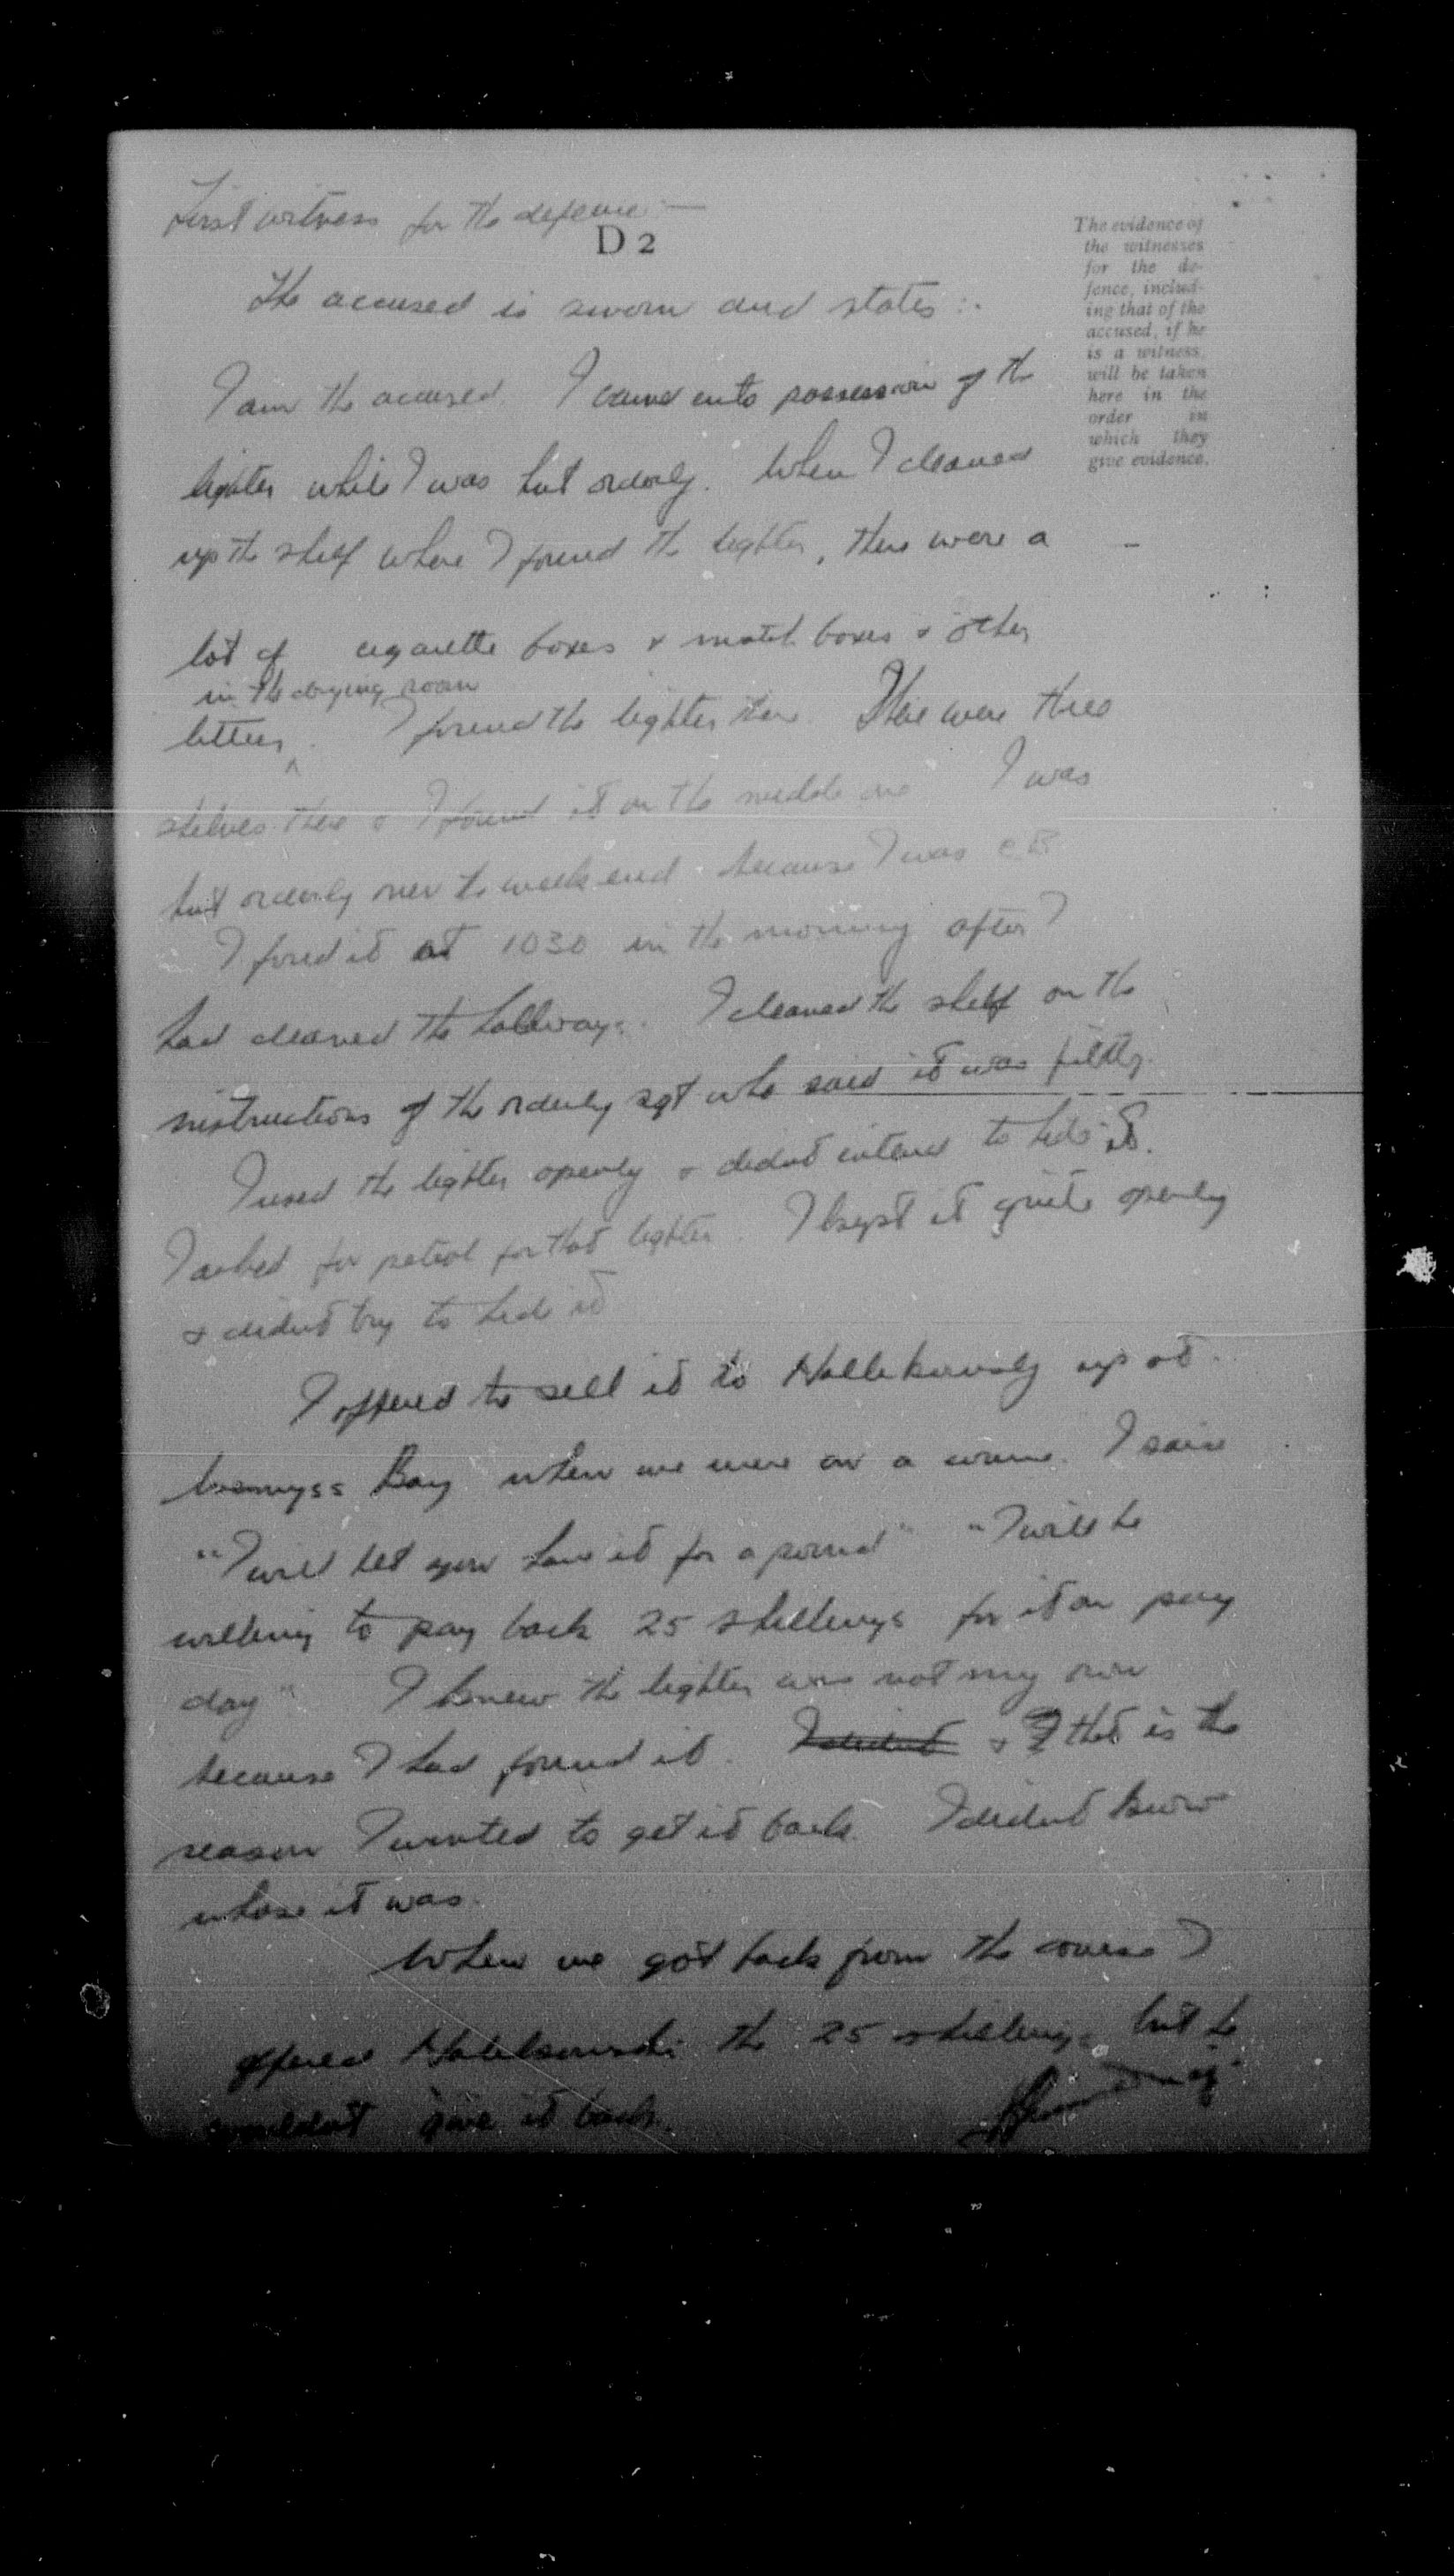 First witness for the defence :—
D 2
The accused is sworn and states :-
The evidence of
the witnesses
for the de-
fence, includ-
ing that of the
accused, if he
is a witness,
will be taken
here in the
order in
which they
give evidence.
I am the accused. I came into possession of the
lighter while I was hut orderly. When I cleaned
up the shelf where I found the lighter, there were a
lot of cigarette boxes & match boxes & other
in the drying room
litter. I found the lighter there. There were three
shelves there & I found it on the middle one I was
hut orderly over the week end because I was CB
I found it at 1030 in the morning after I
had cleaned the hallways. I cleaned the shelf on the
instructions of the orderly sgt who said it was filthy.
I used the lighter openly & didnt intend to hide it.
I asked for petrol for that lighter. I kept it quite openly
& didnt try to hide it
I offered to sell it to up at
Wemyss Bay when we were on a course. I said
"I will let you have it for a pound" "I will be
willing to pay back 25 shillings for it on pay
day" I knew the lighter was not my own
because I had found it. I didnt & that is the
reason I wanted to get it back. I didnt know
whose it was.
When we got back from the course I
offered the 25 shillings but he
wouldnt give it back.